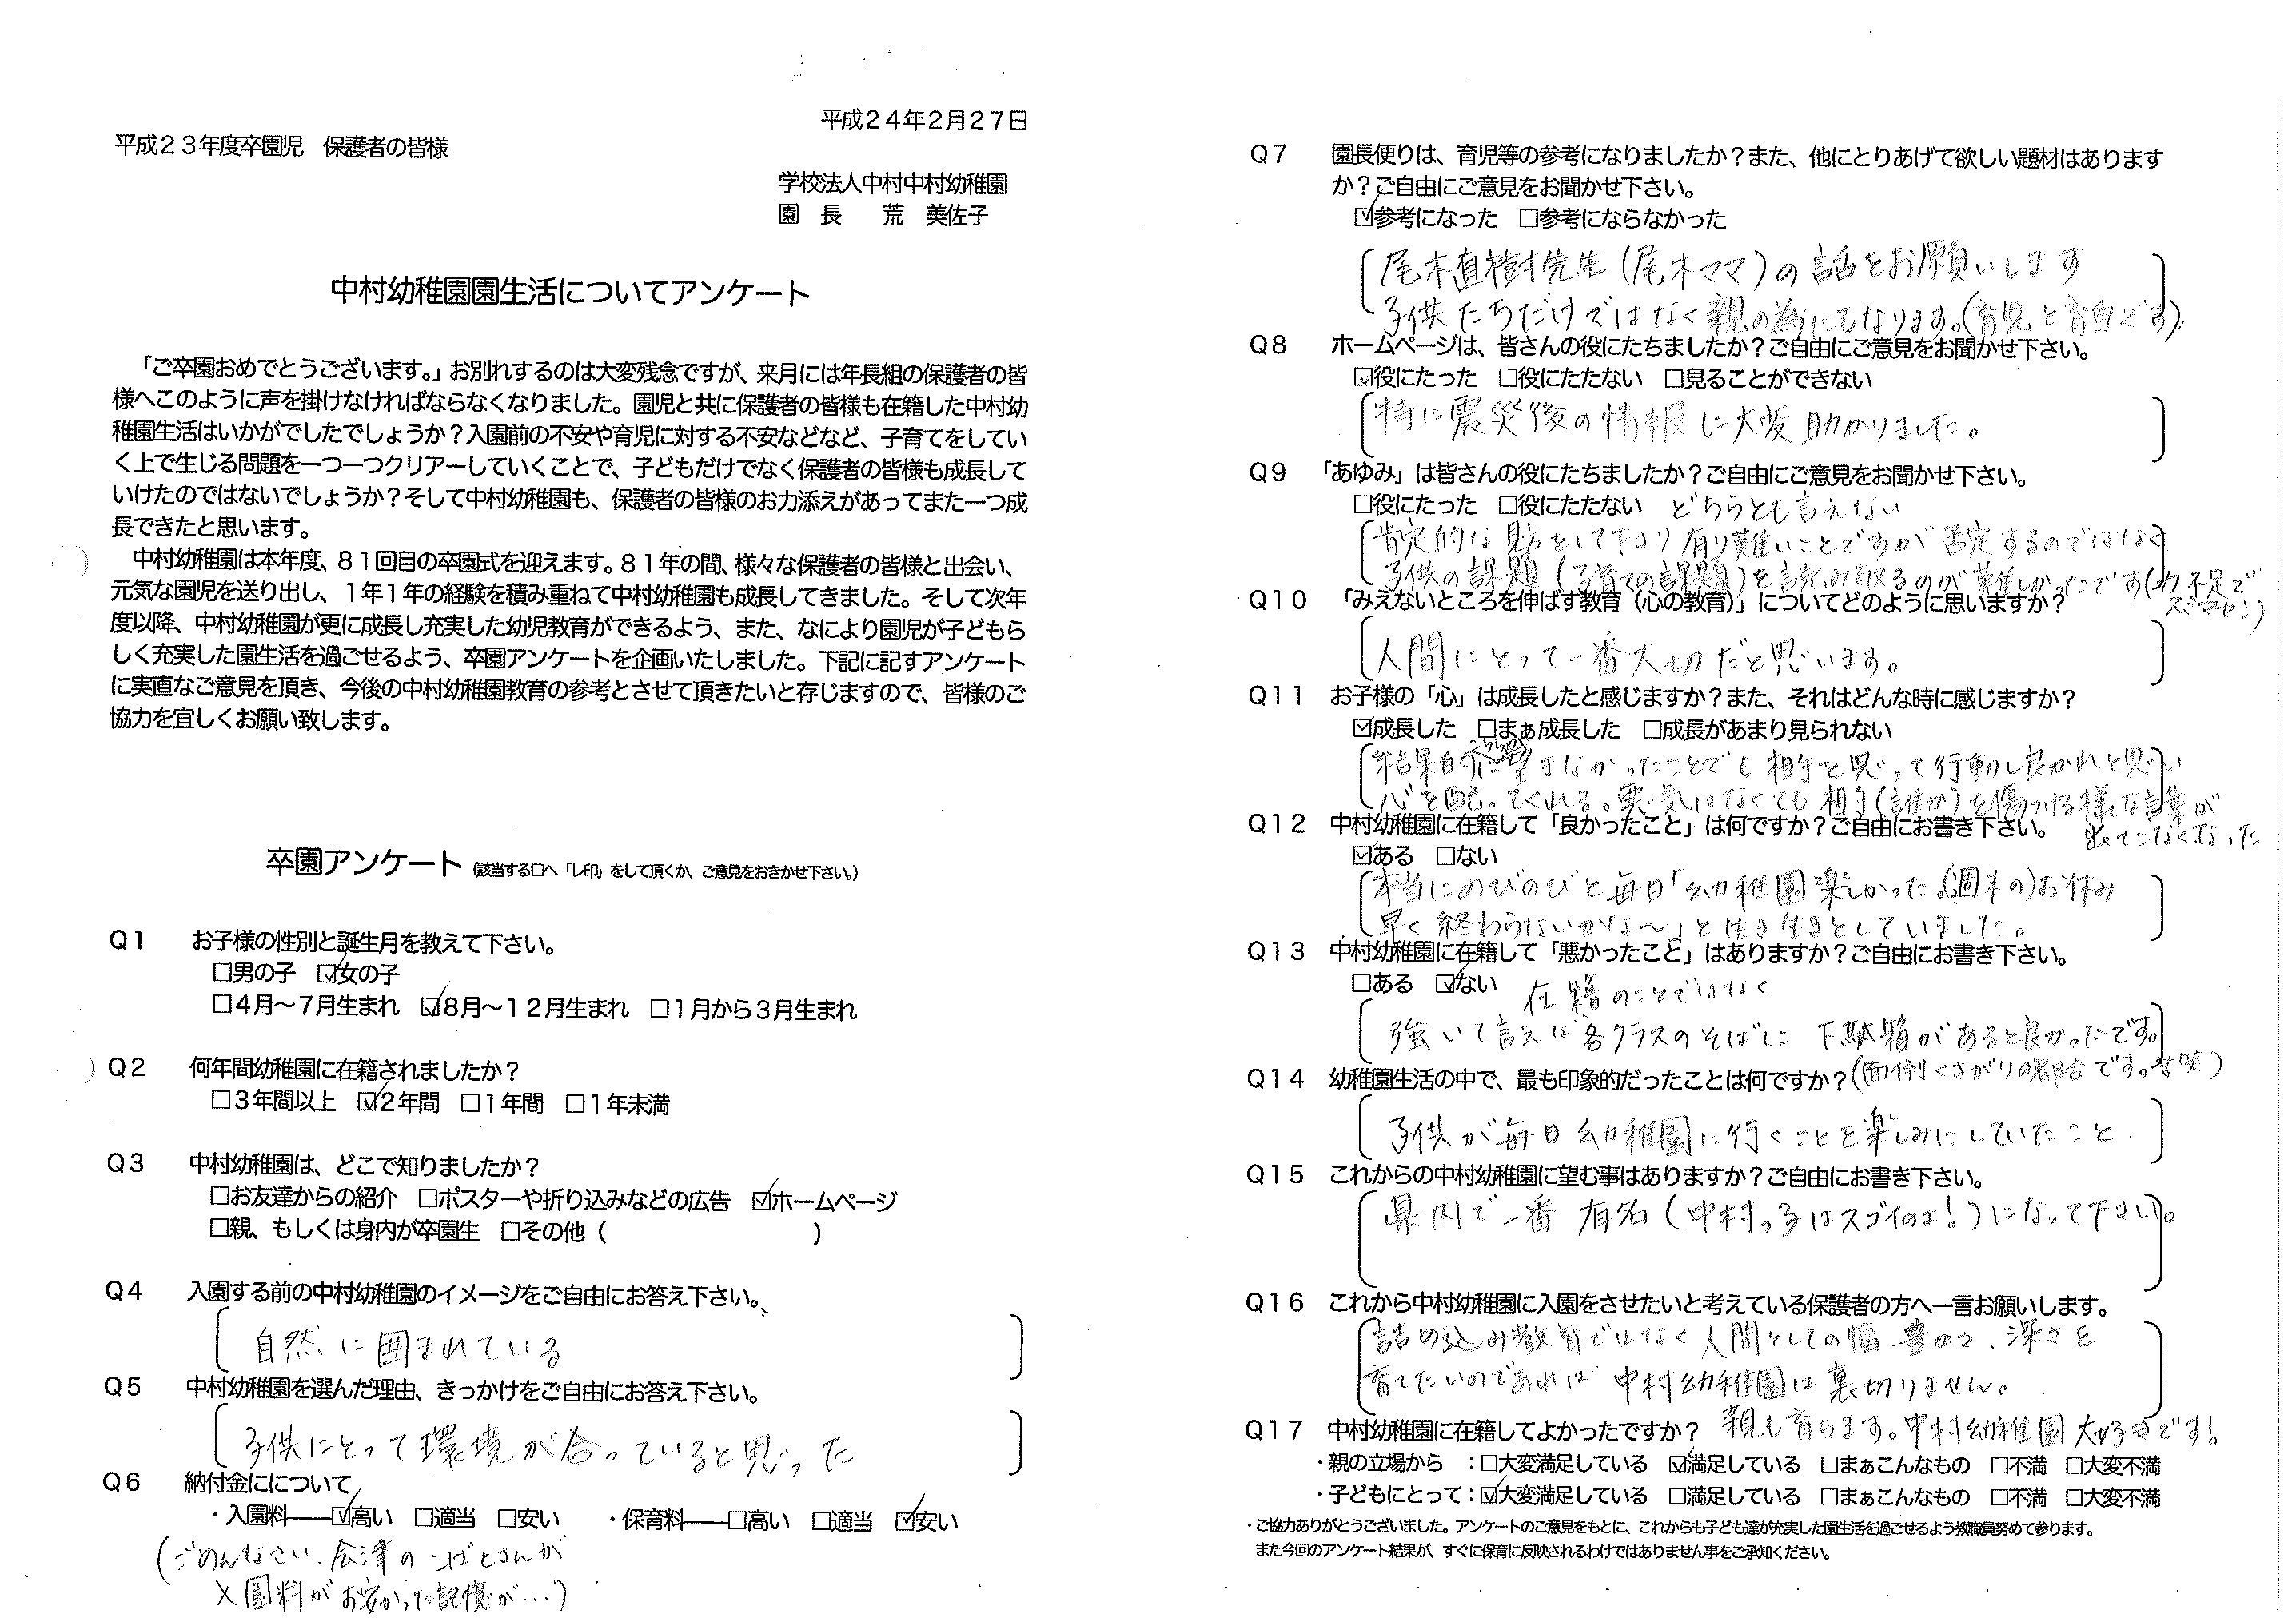 平成24年2月27日
平成23年度卒園児　保護者の皆様
学校法人中村中村幼稚園
園　長　　荒　美佐子
中村幼稚園園生活についてアンケート
「ご卒園おめでとうございます。」お別れするのは大変残念ですが、来月には年長組の保護者の皆
様へこのように声を掛けなければならなくなりました。園児と共に保護者の皆様も在籍した中村幼
稚園生活はいかがでしたでしょうか？入園前の不安や育児に対する不安などなど、子育てをしてい
く上で生じる問題を一つ一つクリアーしていくことで、子どもだけでなく保護者の皆様も成長して
いけたのではないでしょうか？そして中村幼稚園も、保護者の皆様のお力添えがあってまた一つ成
長できたと思います。
中村幼稚園は本年度、81回目の卒園式を迎えます。81年の間、様々な保護者の皆様と出会い、
元気な園児を送り出し、1年1年の経験を積み重ねて中村幼稚園も成長してきました。そして次年
度以降、中村幼稚園が更に成長し充実した幼児教育ができるよう、また、なにより園児が子どもら
しく充実した園生活を過ごせるよう、卒園アンケートを企画いたしました。下記に記すアンケート
に実直なご意見を頂き、今後の中村幼稚園教育の参考とさせて頂きたいと存じますので、皆様のご
協力を宜しくお願い致します。
卒園アンケート（該当する□へ「レ印」をして頂くか、ご意見をおきかせ下さい。）
Q1　お子様の性別と誕生月を教えて下さい。
□男の子　☑女の子
□4月～7月生まれ　☑8月～12月生まれ　□1月から3月生まれ
Q2　何年間幼稚園に在籍されましたか？
□3年間以上　☑2年間　□1年間　□1年未満
Q3　中村幼稚園は、どこで知りましたか？
□お友達からの紹介　□ポスターや折り込みなどの広告　☑ホームページ
□親、もしくは身内が卒園生　□その他（　　　　　）
Q4　入園する前の中村幼稚園のイメージをご自由にお答え下さい。
自然に囲まれている
Q5　中村幼稚園を選んだ理由、きっかけをご自由にお答え下さい。
子供にとって環境が合っていると思った
Q6　納付金にについて
・入園料――☑高い　□適当　□安い　・保育料――□高い　□適当　☑安い
（ごめんなさい、会津のこばとさんが
入園料がお安かった記憶が…）
Q7　園長便りは、育児等の参考になりましたか？また、他にとりあげて欲しい題材はあります
か？ご自由にご意見をお聞かせ下さい。
☑参考になった　□参考にならなかった
尾木直樹先生（尾木ママ）の話をお願いします
子供たちだけではなく親の為にもなります。（育児と育自です）
Q8　ホームページは、皆さんの役にたちましたか？ご自由にご意見をお聞かせ下さい。
☑役にたった　□役にたたない　□見ることができない
特に震災後の情報に大変助かりました。
Q9　「あゆみ」は皆さんの役にたちましたか？ご自由にご意見をお聞かせ下さい。
□役にたった　□役にたたない　どちらとも言えない
肯定的な見方をして下さり有り難いことですが否定するのではなく
子供の課題（子育ての課題）を読み取るのが難しかったです（力不足で
スミマセン）
Q10　「みえないところを伸ばす教育（心の教育）」についてどのように思いますか？
人間にとって一番大切だと思います。
Q11　お子様の「心」は成長したと感じますか？また、それはどんな時に感じますか？
☑成長した　□まぁ成長した　□成長があまり見られない
結果的に望まなかったことでも相手を思って行動し良かれと思い
心を配ってくれる。悪気はなくても相手（誰か）を傷つける様な言葉が
出てこなくなった
Q12　中村幼稚園に在籍して「良かったこと」は何ですか？ご自由にお書き下さい。
☑ある　□ない
本当にのびのびと毎日「幼稚園楽しかった。（週末の）お休み
早く終わらないかな～」と生き生きとしていました。
Q13　中村幼稚園に在籍して「悪かったこと」はありますか？ご自由にお書き下さい。
□ある　☑ない　在籍のことではなく
強いて言えば各クラスのそばに下駄箱があると良かったです。
（面倒くさがりの場合です。苦笑）
Q14　幼稚園生活の中で、最も印象的だったことは何ですか？
子供が毎日幼稚園に行くことを楽しみにしていたこと.
Q15　これからの中村幼稚園に望む事はありますか？ご自由にお書き下さい。
県内で一番有名（中村っ子はスゴイのよ！）になって下さい。
Q16　これから中村幼稚園に入園をさせたいと考えている保護者の方へ一言お願いします。
詰め込み教育ではなく人間としての幅、豊かさ、深さを
育てたいのであれば中村幼稚園は裏切りません。
親も育ちます。中村幼稚園大好きです！
Q17　中村幼稚園に在籍してよかったですか？
・親の立場から　：□大変満足している　☑満足している　□まぁこんなもの　□不満　□大変不満
・子どもにとって：☑大変満足している　□満足している　□まぁこんなもの　□不満　□大変不満
・ご協力ありがとうございました。アンケートのご意見をもとに、これからも子ども達が充実した園生活を過ごせるよう教職員努めて参ります。
また今回のアンケート結果が、すぐに保育に反映されるわけではありません事をご承知ください。